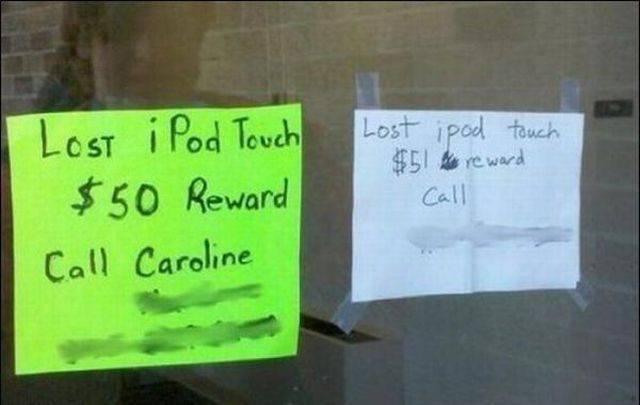 LOST iPod Touch
$50 Reward
Call Caroline
Lost ipod touch
$51 reward
Call